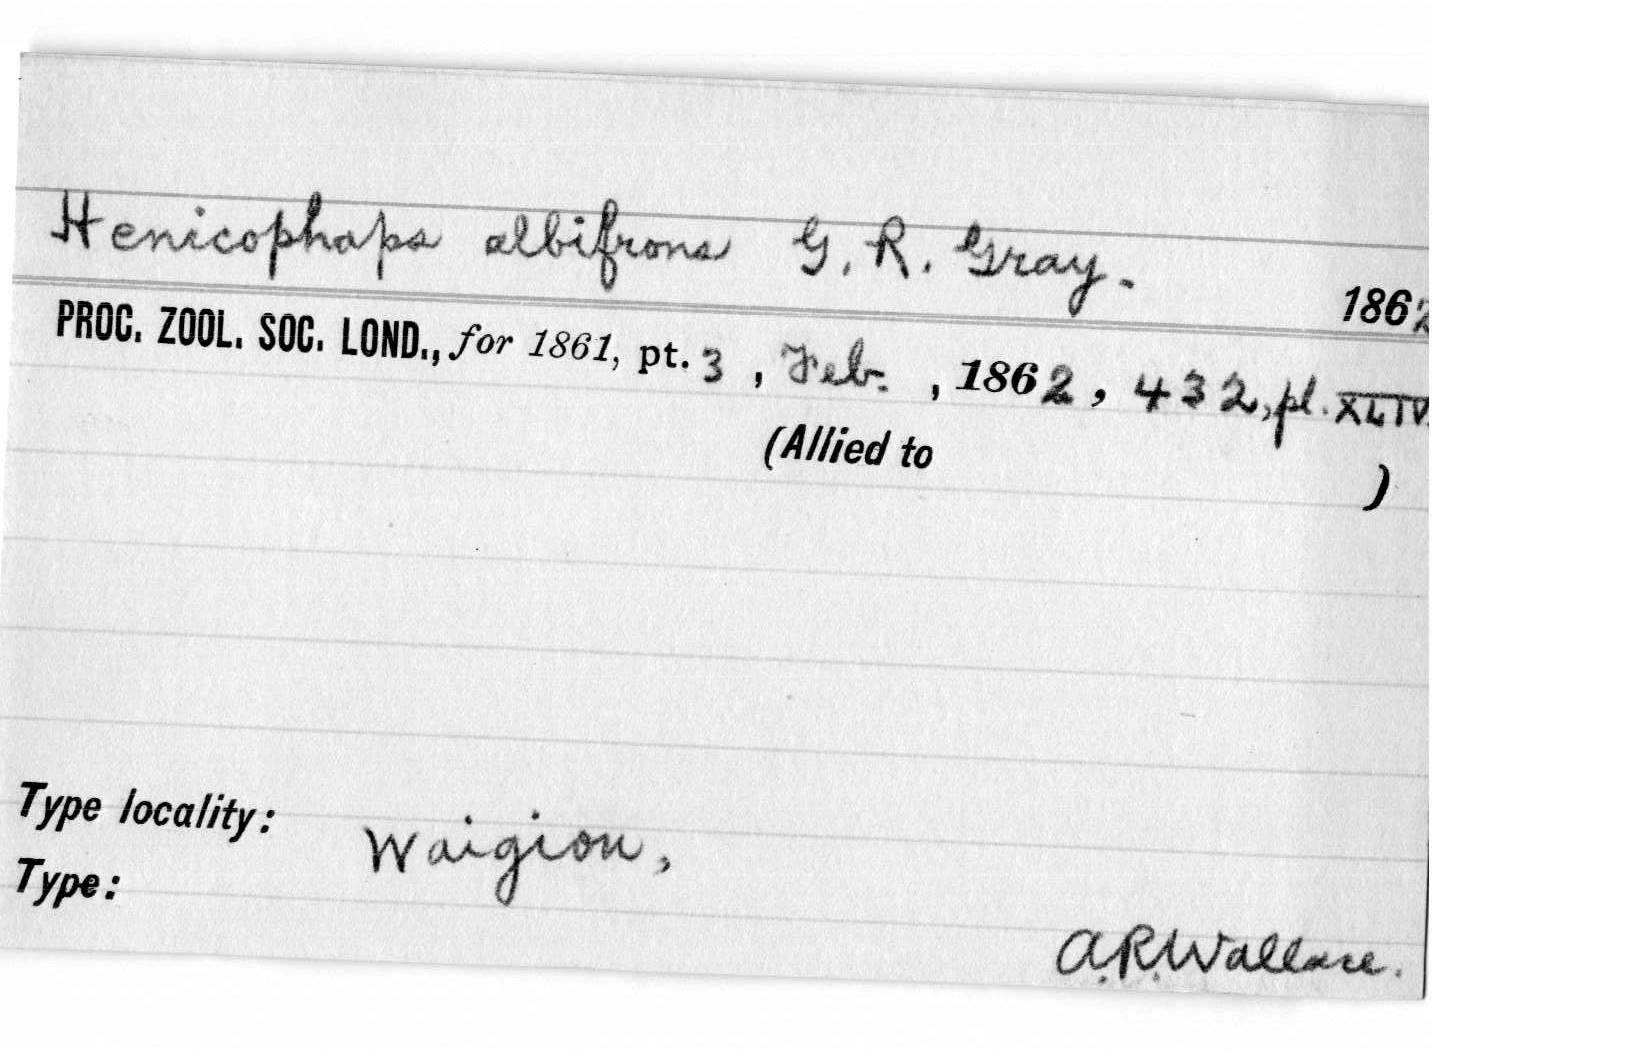 Henicophaps albifrons G. R. Gray.
1862
PROC. ZOOL. SOC. LOND., for 1861, pt. 3, Feb., 1862, 432, pl. XLIV.
(Allied to )
Type locality: Waigiou,
Type:
A.R.Wallace.